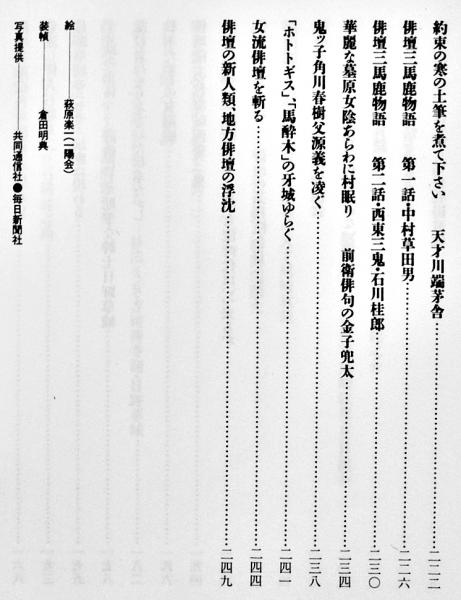 約束の寒の土筆を煮て下さい　天才川端茅舎……二二二
俳壇三馬鹿物語　第一話・中村草田男……二二六
俳壇三馬鹿物語　第二話・西東三鬼・石川桂郎……二三〇
華麗な墓原女陰あらわに村眠り　前衛俳句の金子兜太……二三四
鬼ッ子角川春樹父源義を凌ぐ……二三八
「ホトトギス」、「馬酔木」の牙城ゆらぐ……二四一
女流俳壇を斬る……二四四
俳壇の新人類、地方俳壇の浮沈……二四九
絵――萩原楽一(一陽会)
装幀――倉田明典
写真提供――共同通信社●毎日新聞社